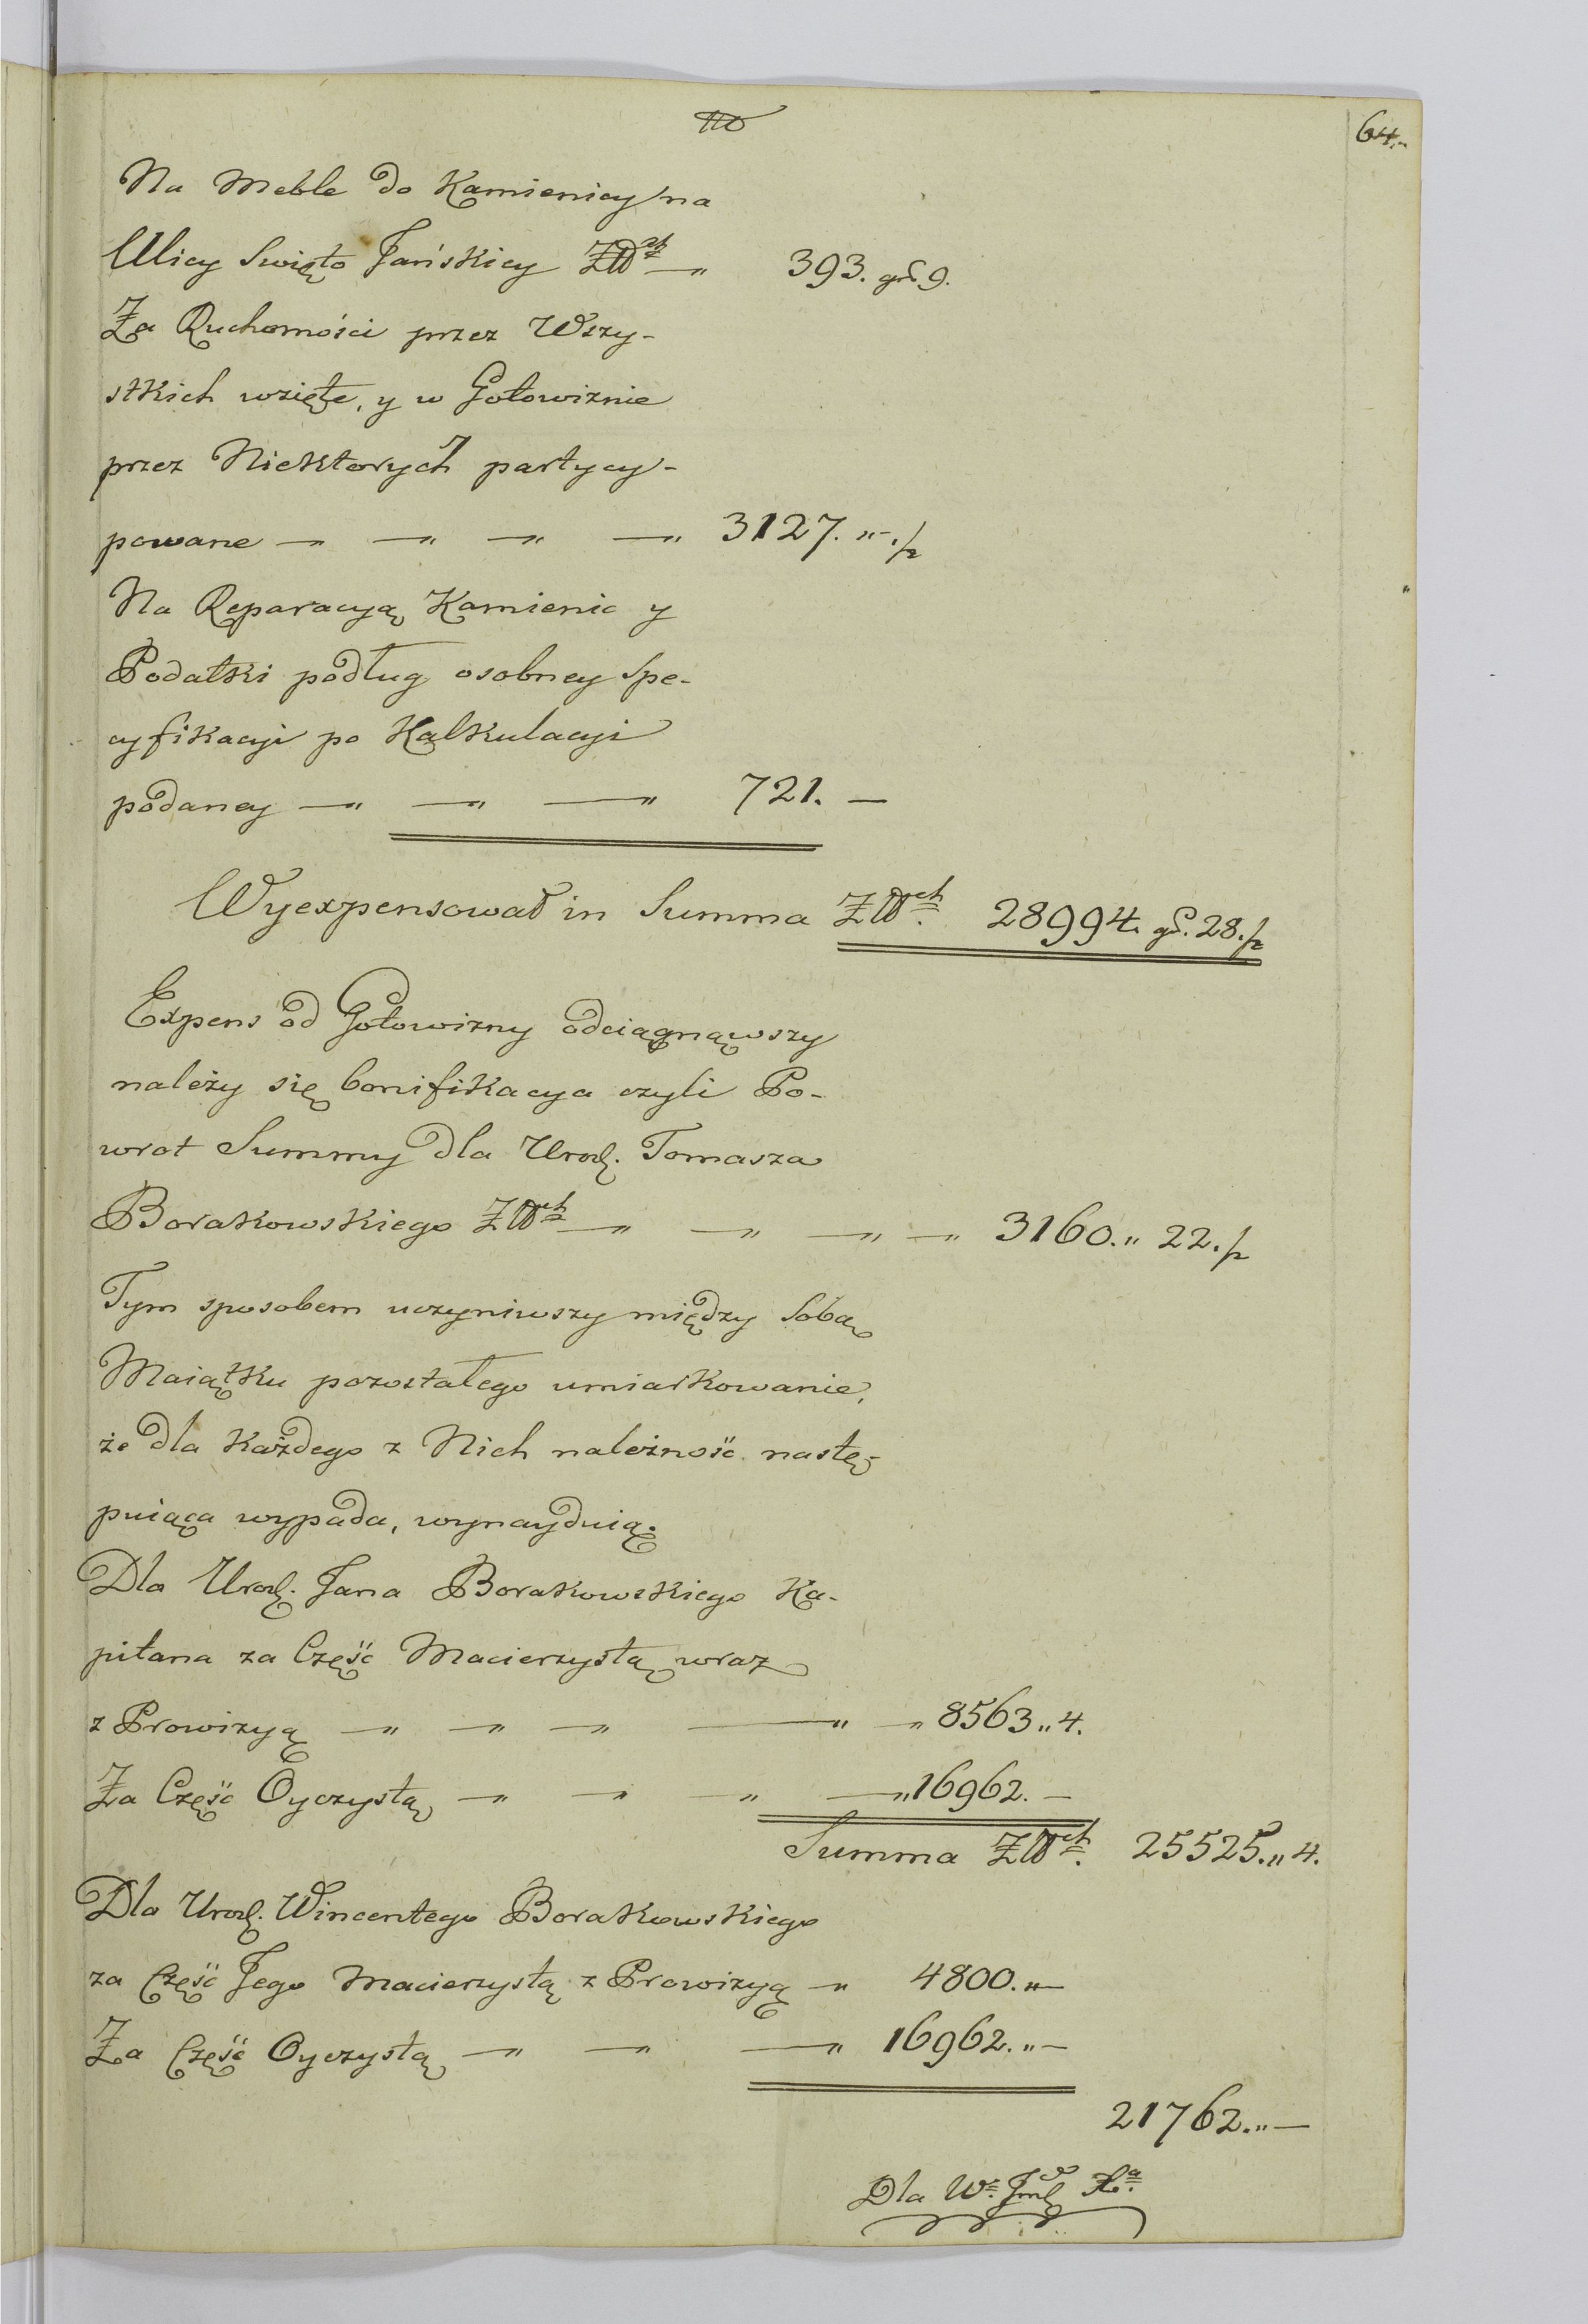 64.
Na Meble do Kamienicy na
Ulicy Swięto Jańskiey Złłch 393. gr. 9.
Za Ruchomości przez Wszy-
stkich wzięte, y w Gotowiznie
przez Niektorych partycy-
powane — — — — 3127. „ - ½
Na Reparacyą Kamienic y
Podatki podług osobney Spe-
cyfikacyi po Kalkulacyi
podaney — — — 721. —
Wyexpensował in Summa Złłch. 28994. gr. 28. ½
Expens od Gotowizny odciągnąwszy
należy się bonifikacya czyli Po-
wrot Summy dla Urodz. Tomasza
Borakowskiego Złłch — — — — 3160. „ 22. ½
Tym sposobem uczyniwszy między Sobą
Maiątku pozostałego umiarkowanie,
że dla Każdego z Nich należność nastę-
puiąca wypada, wynayduią.
Dla Urodz. Jana Borakowskiego Ka-
pitana za Część Macierzystą wraz
z Prowizyą — — — — — 8563 „ 4.
Za Część Oyczystą — — — — 16962. —
Summa Złłch. 25525. „ 4.
Dla Urodz. Wincentego Borakowskiego
za Część Jego Macierzystą z Prowizyą — 4800. „ —
Za Część Oyczystą — — — 16962. „ —
21762. „ —
Dla W.